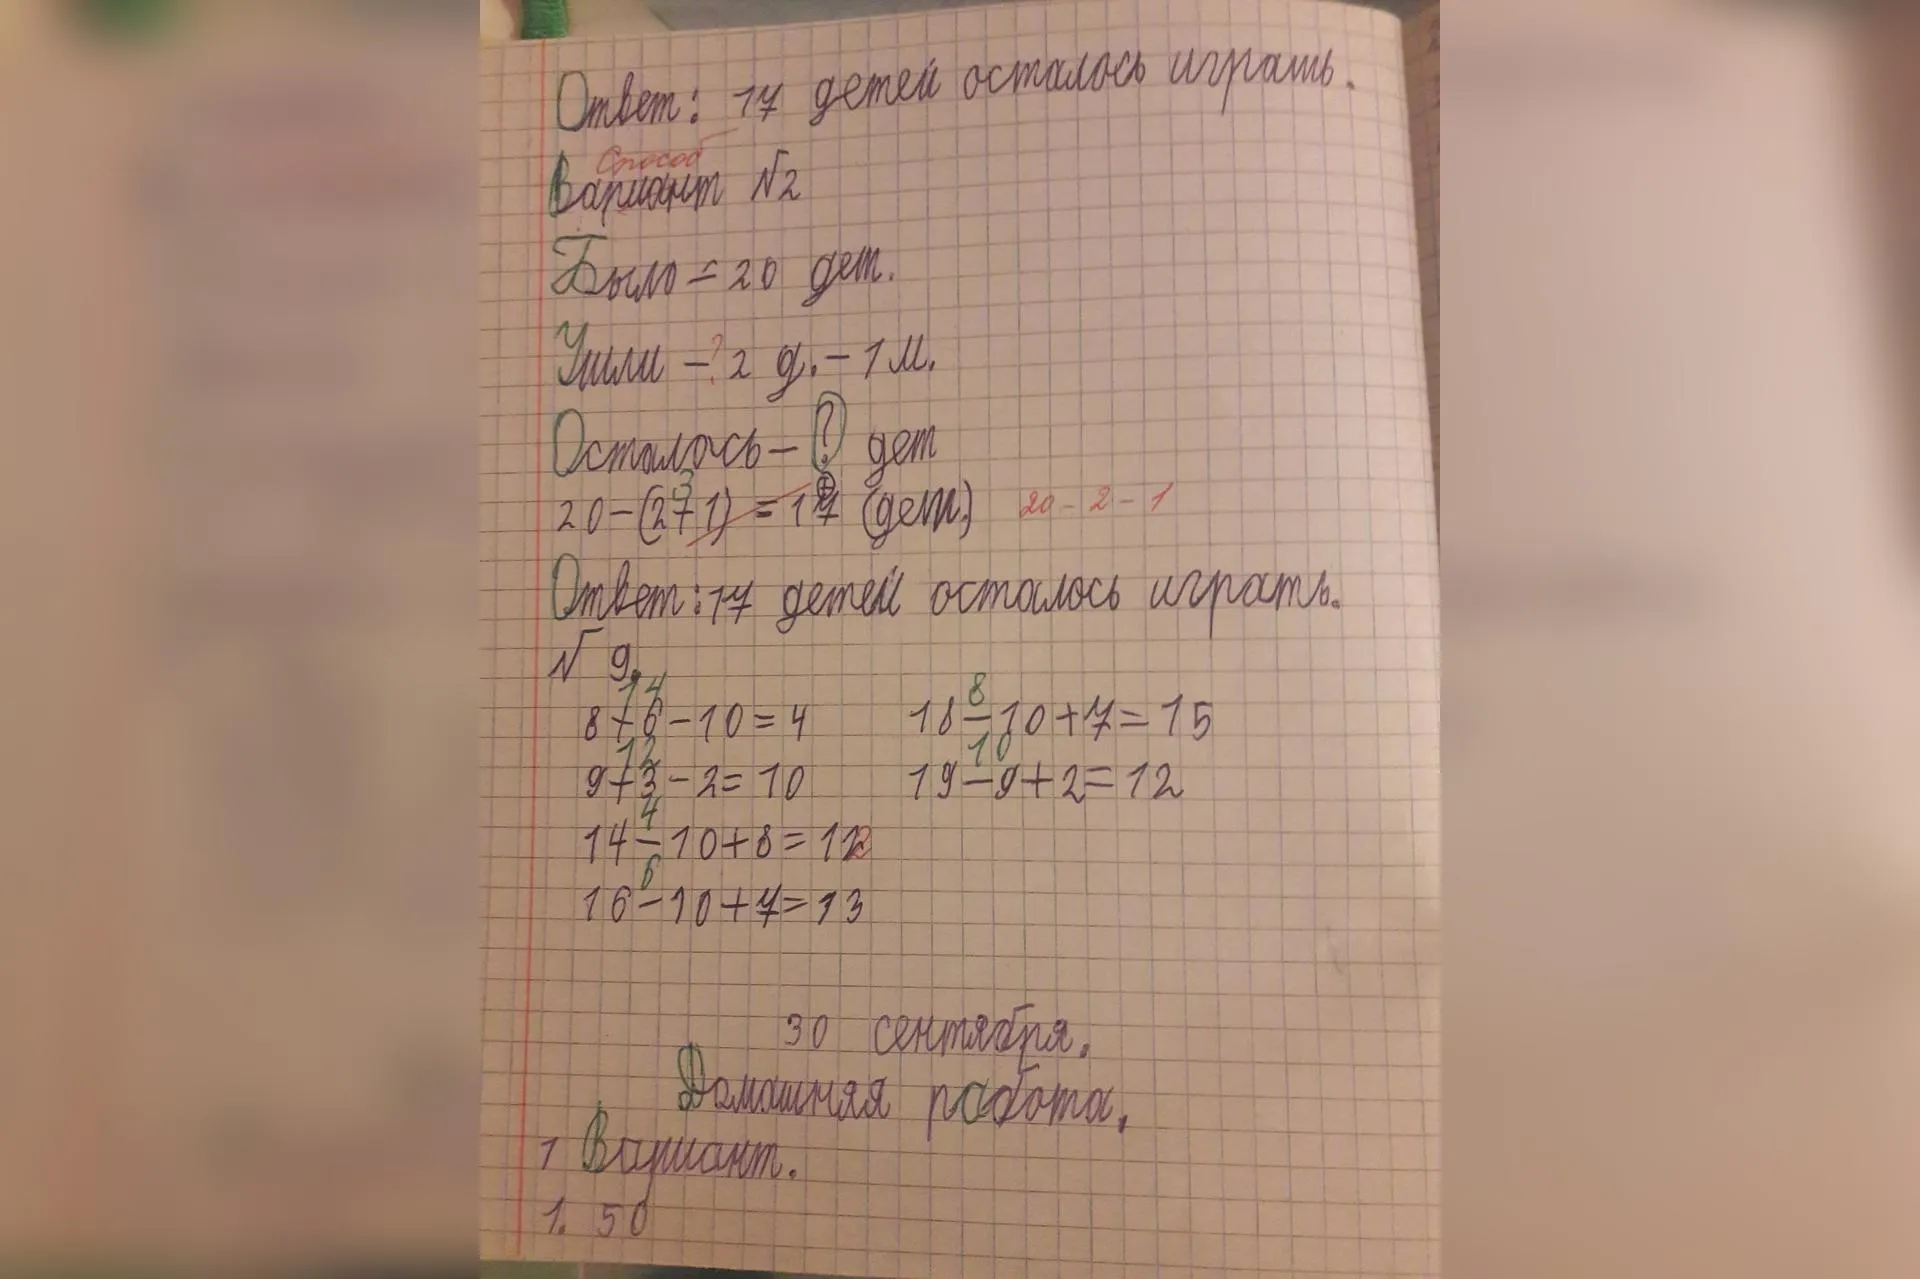 Ответ: 17 детей осталось играть.
Способ
Вариант №2
Было = 20 дет.
Ушли -? 2 д. - 1 м.
Осталось - ? дет
3
20-(2+1) = 17 (дет.) 20-2-1
Ответ: 17 детей осталось играть.
№ 9.
14 8
8+6-10=4 18-10+7=15
12 10
9+3-2=10 19-9+2=12
4
14-10+8=12
6
16-10+7=13
30 сентября.
Домашняя работа.
1 Вариант.
1. 50